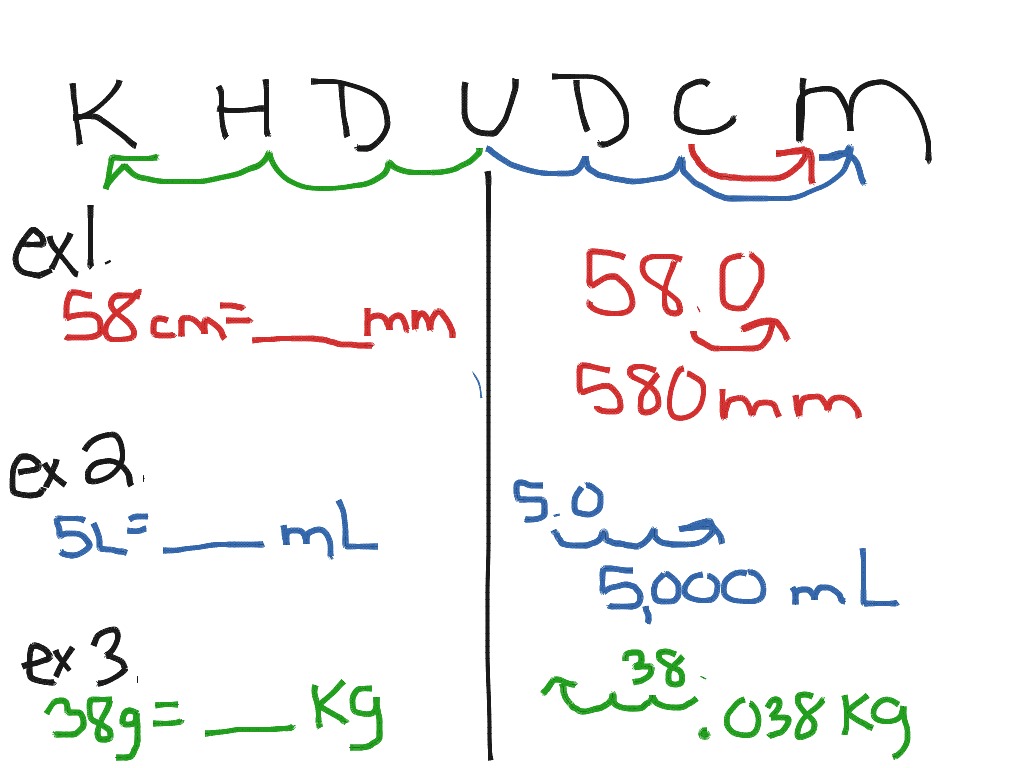 K H D U D C m
ex1.
58cm=___mm
58.0
580mm
ex2.
5L=___mL
5.0
5,000 mL
ex3.
38g=___Kg
38.
.038Kg